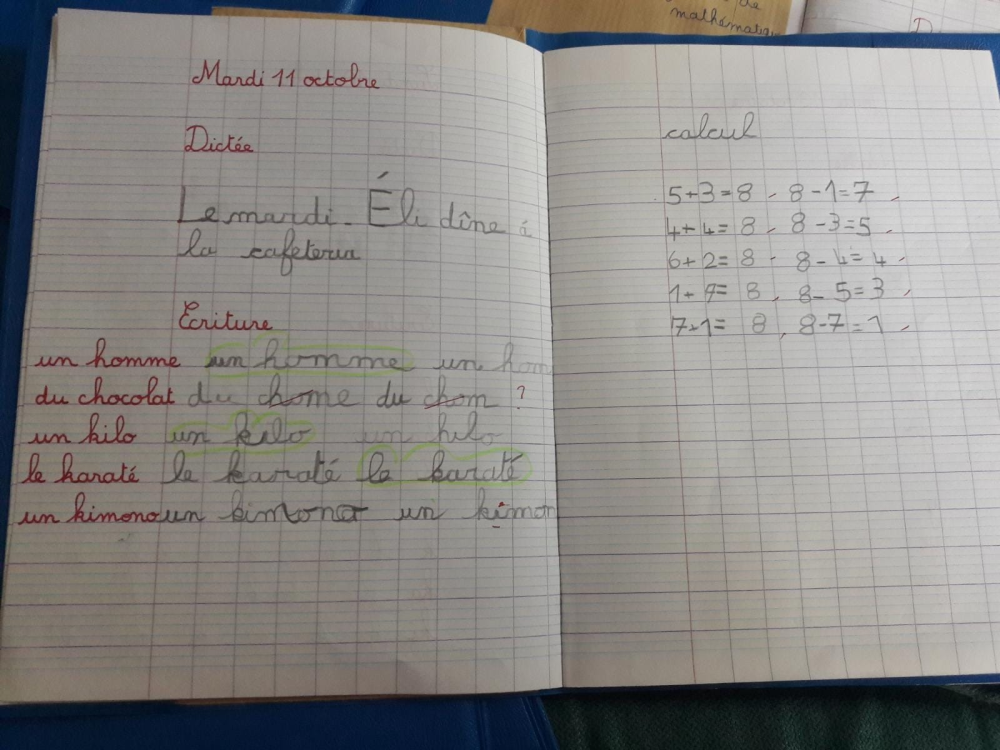 de
mathématiqu
D
Mardi 11 octobre
Dictée
Le mardi. Éli dîne à
la cafeteria
Ecriture
un homme un homme un hom
du chocolat du chome du chom ?
un kilo un kilo un kilo
le karaté le karaté le karaté
un kimono un kimono un kimon
calcul
5+3=8 8-1=7
4+4=8 8-3=5
6+2=8 8-4=4
1+7=8 8-5=3
7+1=8 8-7=1